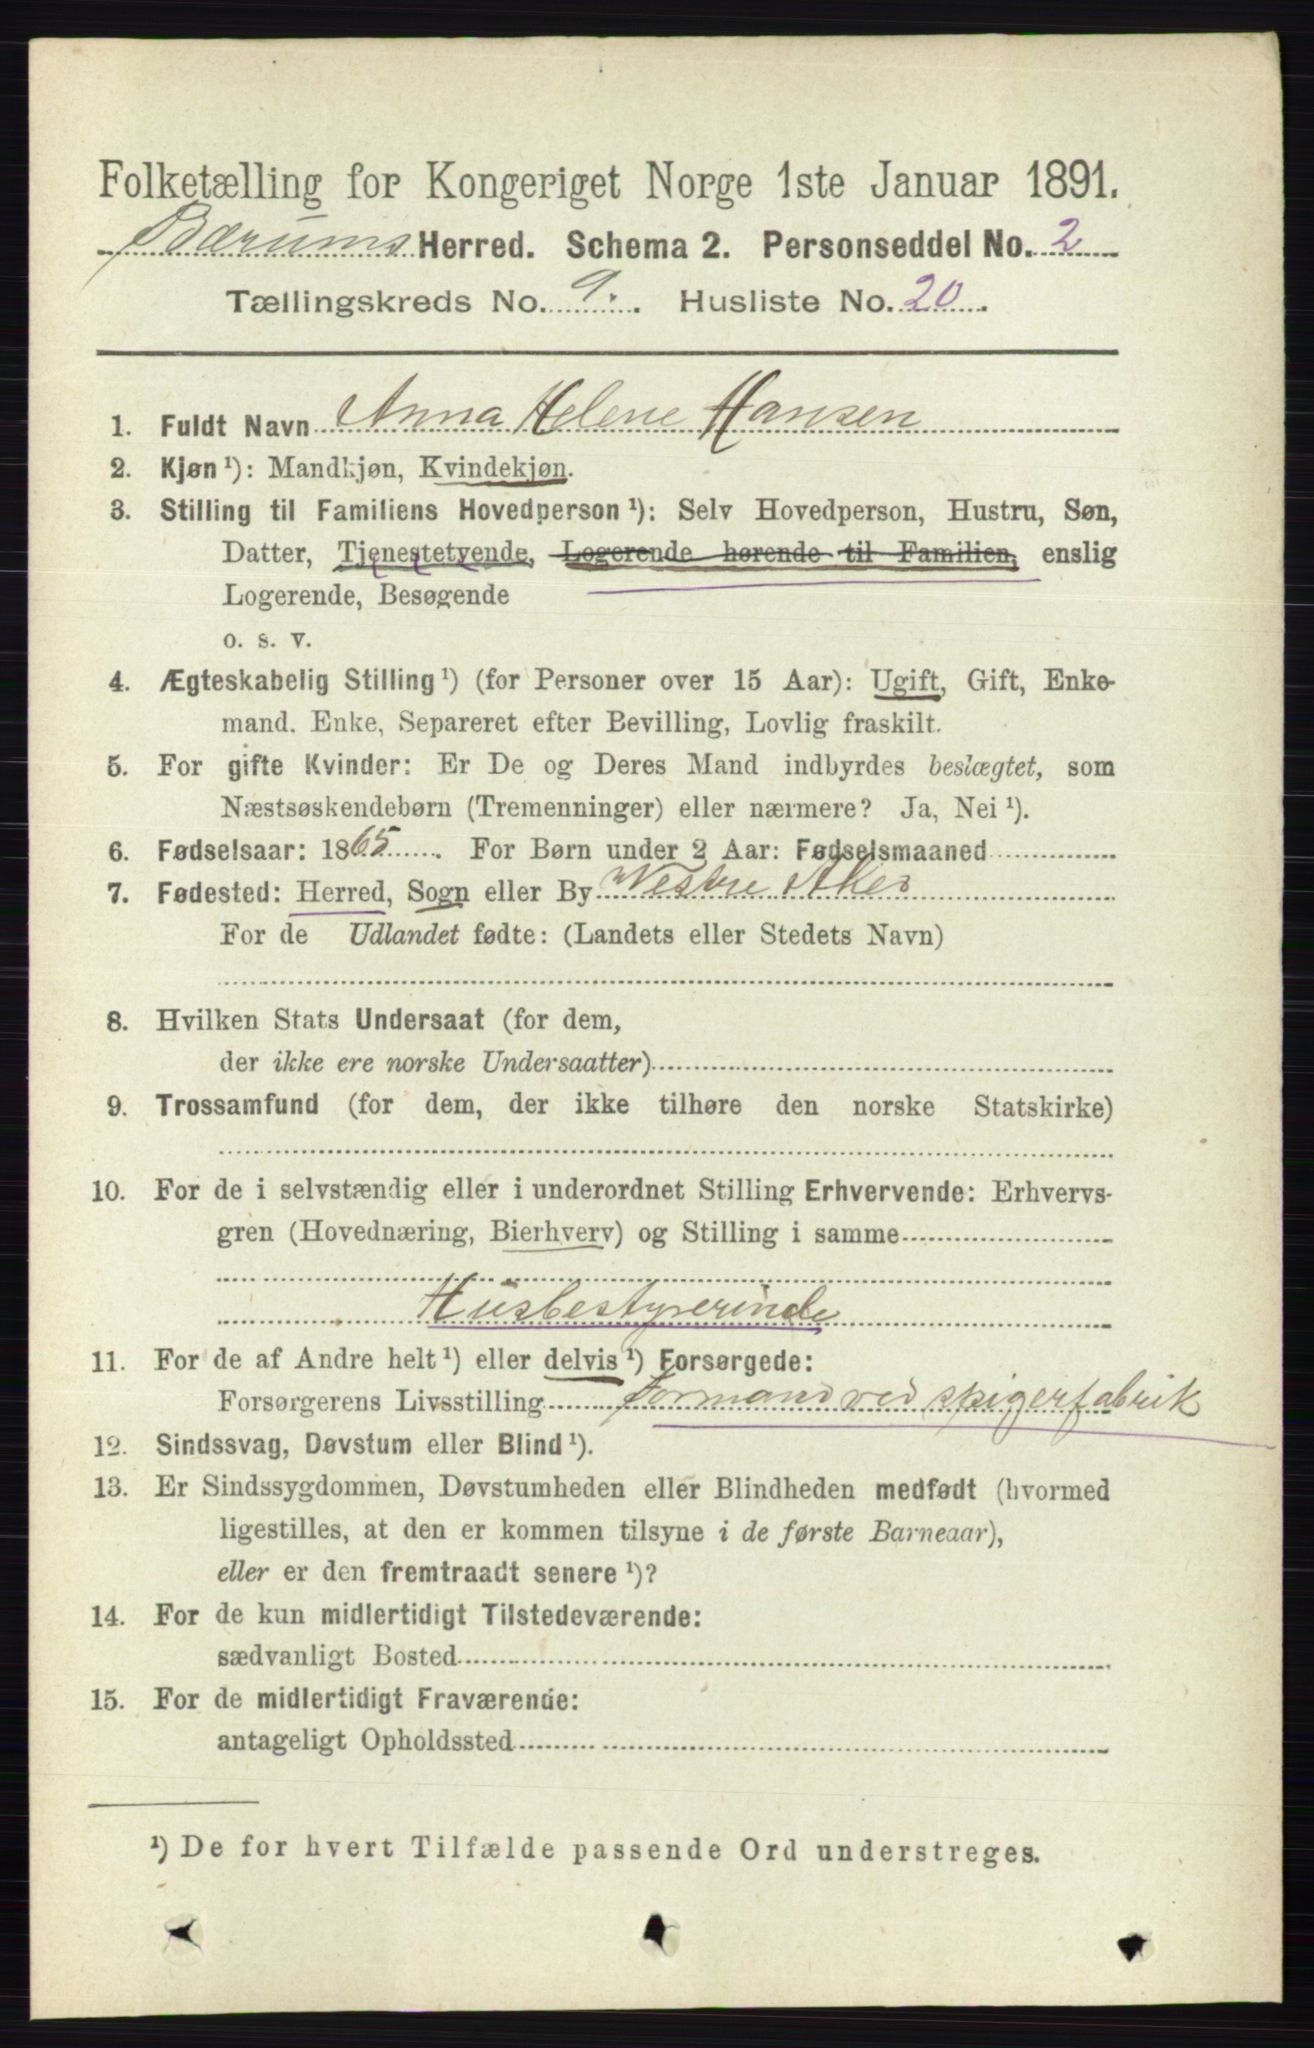 Folketælling for Kongeriget Norge 1ste Januar 1891.
Bærums Herred. Schema 2. Personseddel No. 2
Tællingskreds No. 9. Husliste No. 20.
1. Fuldt Navn Anna Helene Hansen
2. Kjøn ¹): Mandkjøn, Kvindekjøn.
3. Stilling til Familiens Hovedperson ¹): Selv Hovedperson, Hustru, Søn,
Datter, Tjenestetyende, Logerende hørende til Familien, enslig
Logerende, Besøgende
o. s. v.
4. Ægteskabelig Stilling ¹) (for Personer over 15 Aar): Ugift, Gift, Enke-
mand. Enke, Separeret efter Bevilling, Lovlig fraskilt.
5. For gifte Kvinder: Er De og Deres Mand indbyrdes beslægtet, som
Næstsøskendebørn (Tremenninger) eller nærmere? Ja, Nei ¹).
6. Fødselsaar: 1865. For Børn under 2 Aar: Fødselsmaaned
7. Fødested: Herred, Sogn eller By Westre Aker
For de Udlandet fødte: (Landets eller Stedets Navn)
8. Hvilken Stats Undersaat (for dem,
der ikke ere norske Undersaatter)
9. Trossamfund (for dem, der ikke tilhøre den norske Statskirke)
10. For de i selvstændig eller i underordnet Stilling Erhvervende: Erhvervs-
gren (Hovednæring, Bierhverv) og Stilling i samme
Husbestyrerinde
11. For de af Andre helt ¹) eller delvis ¹) Forsørgede:
Forsørgerens Livsstilling Formand ved spigerfabrik
12. Sindssvag, Døvstum eller Blind ¹).
13. Er Sindssygdommen, Døvstumheden eller Blindheden medfødt (hvormed
ligestilles, at den er kommen tilsyne i de første Barneaar),
eller er den fremtraadt senere ¹)?
14. For de kun midlertidigt Tilstedeværende:
sædvanligt Bosted
15. For de midlertidigt Fraværende:
antageligt Opholdssted
¹) De for hvert Tilfælde passende Ord understreges.